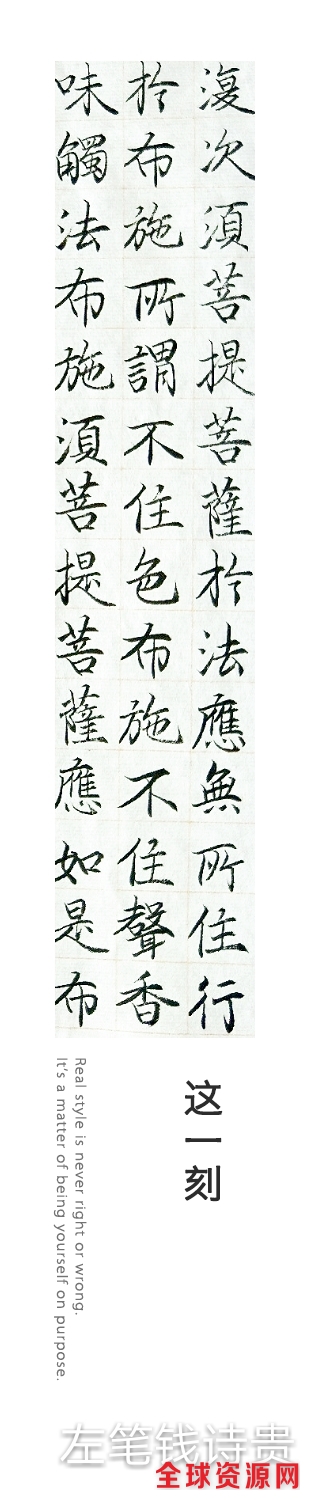 復次須菩提菩薩於法應無所住行
於布施所謂不住色布施不住聲香
味觸法布施須菩提菩薩應如是布
这一刻
Real style is never right or wrong.
It's a matter of being yourself on purpose.
左笔钱诗贵
全球资源网